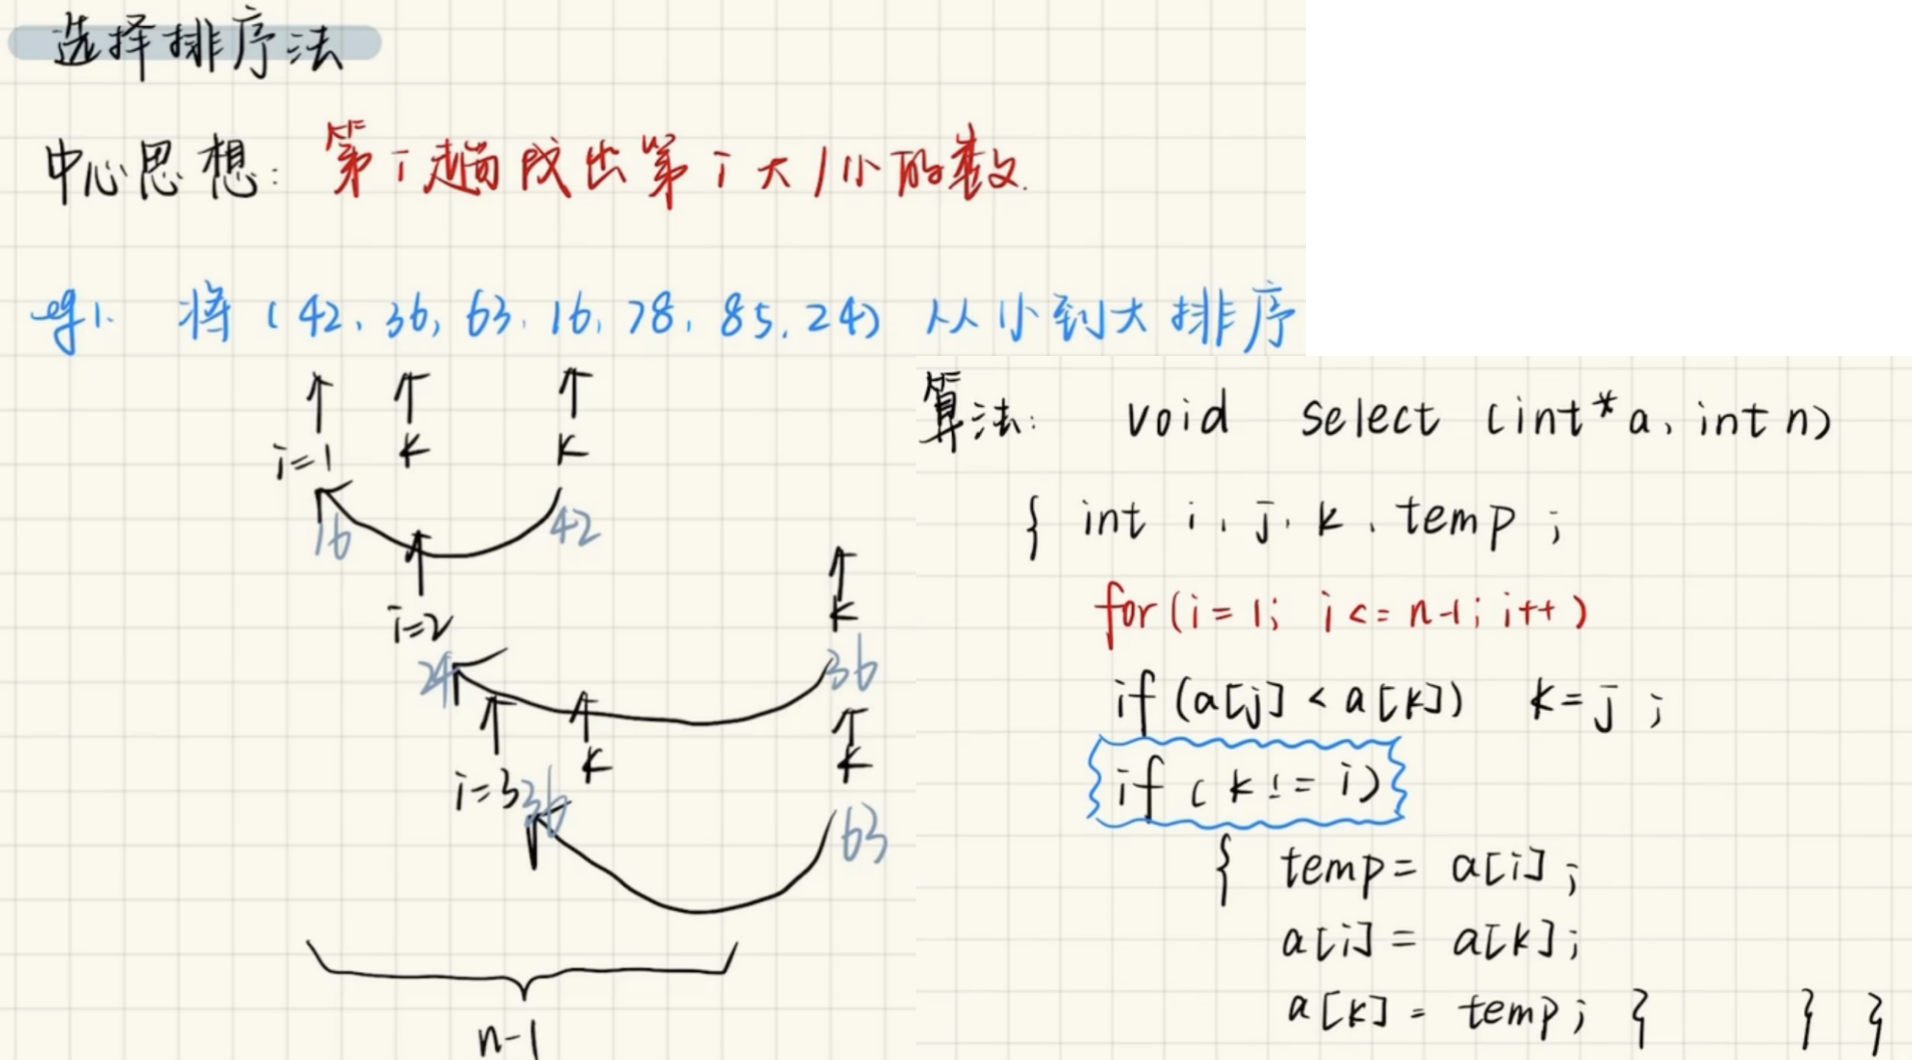 选择排序法
中心思想: 第i趟成出第i大/小的数.
eg1. 将(42, 36, 63, 16, 78, 85, 24) 从小到大排序
i=1 k k
16 42
i=2 k
24 36
i=3 k k
36 63
n-1
算法: void select (int* a, int n)
{ int i, j, k, temp ;
for(i=1; i<=n-1; i++)
if (a[j] < a[k]) k=j ;
if ( k != i)
{ temp = a[i] ;
a[i] = a[k] ;
a[k] = temp ; } } }